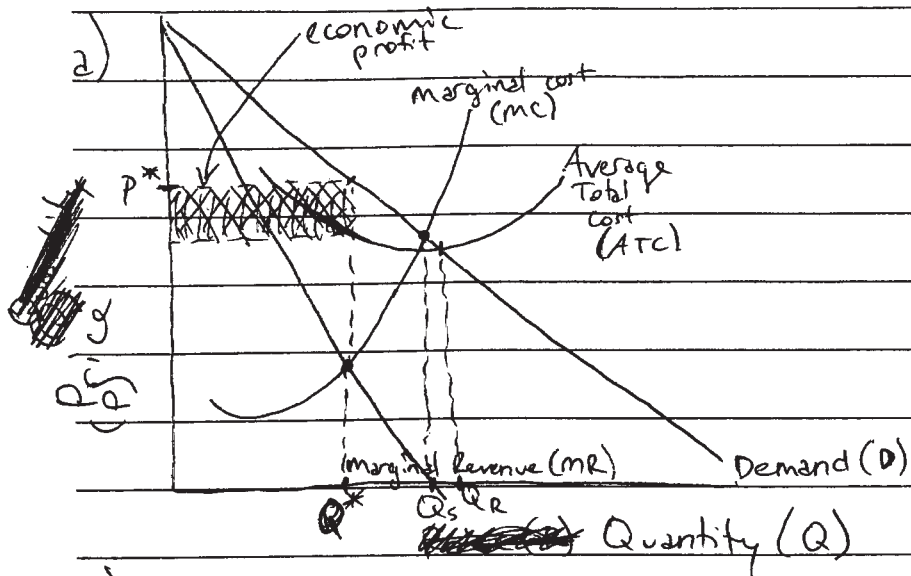 a)
economic
profit
marginal cost
(MC)
P*
Average
Total
cost
(ATC)
Price
(P)
Marginal Revenue (MR)
Demand (D)
Q*
Qs
QR
Quantity (Q)